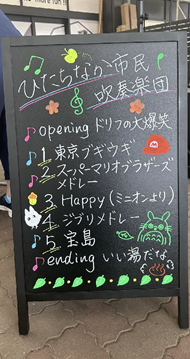 ひたちなか市民
吹奏楽団
opening ドリフの大爆笑
1. 東京ブギウギ
2. スーパーマリオブラザーズ
メドレー
3. Happy (ミニオンより)
4. ジブリメドレー
5. 宝島
ending いい湯だな